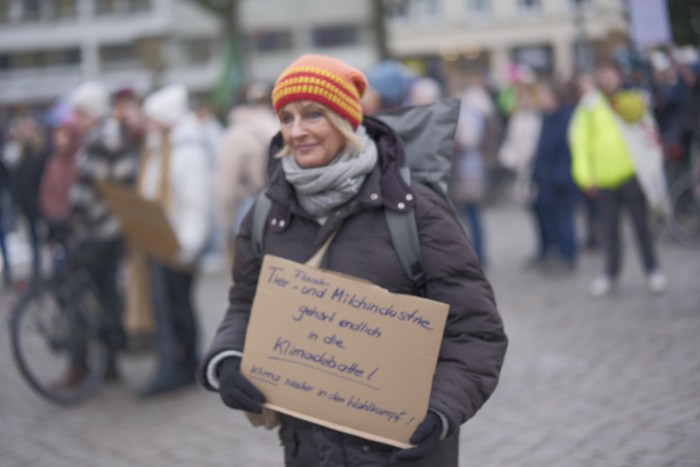 Fleisch-
Tier- und Milchindustrie
gehört endlich
in die
Klimadebatte!
Klima wieder in den Wahlkampf!